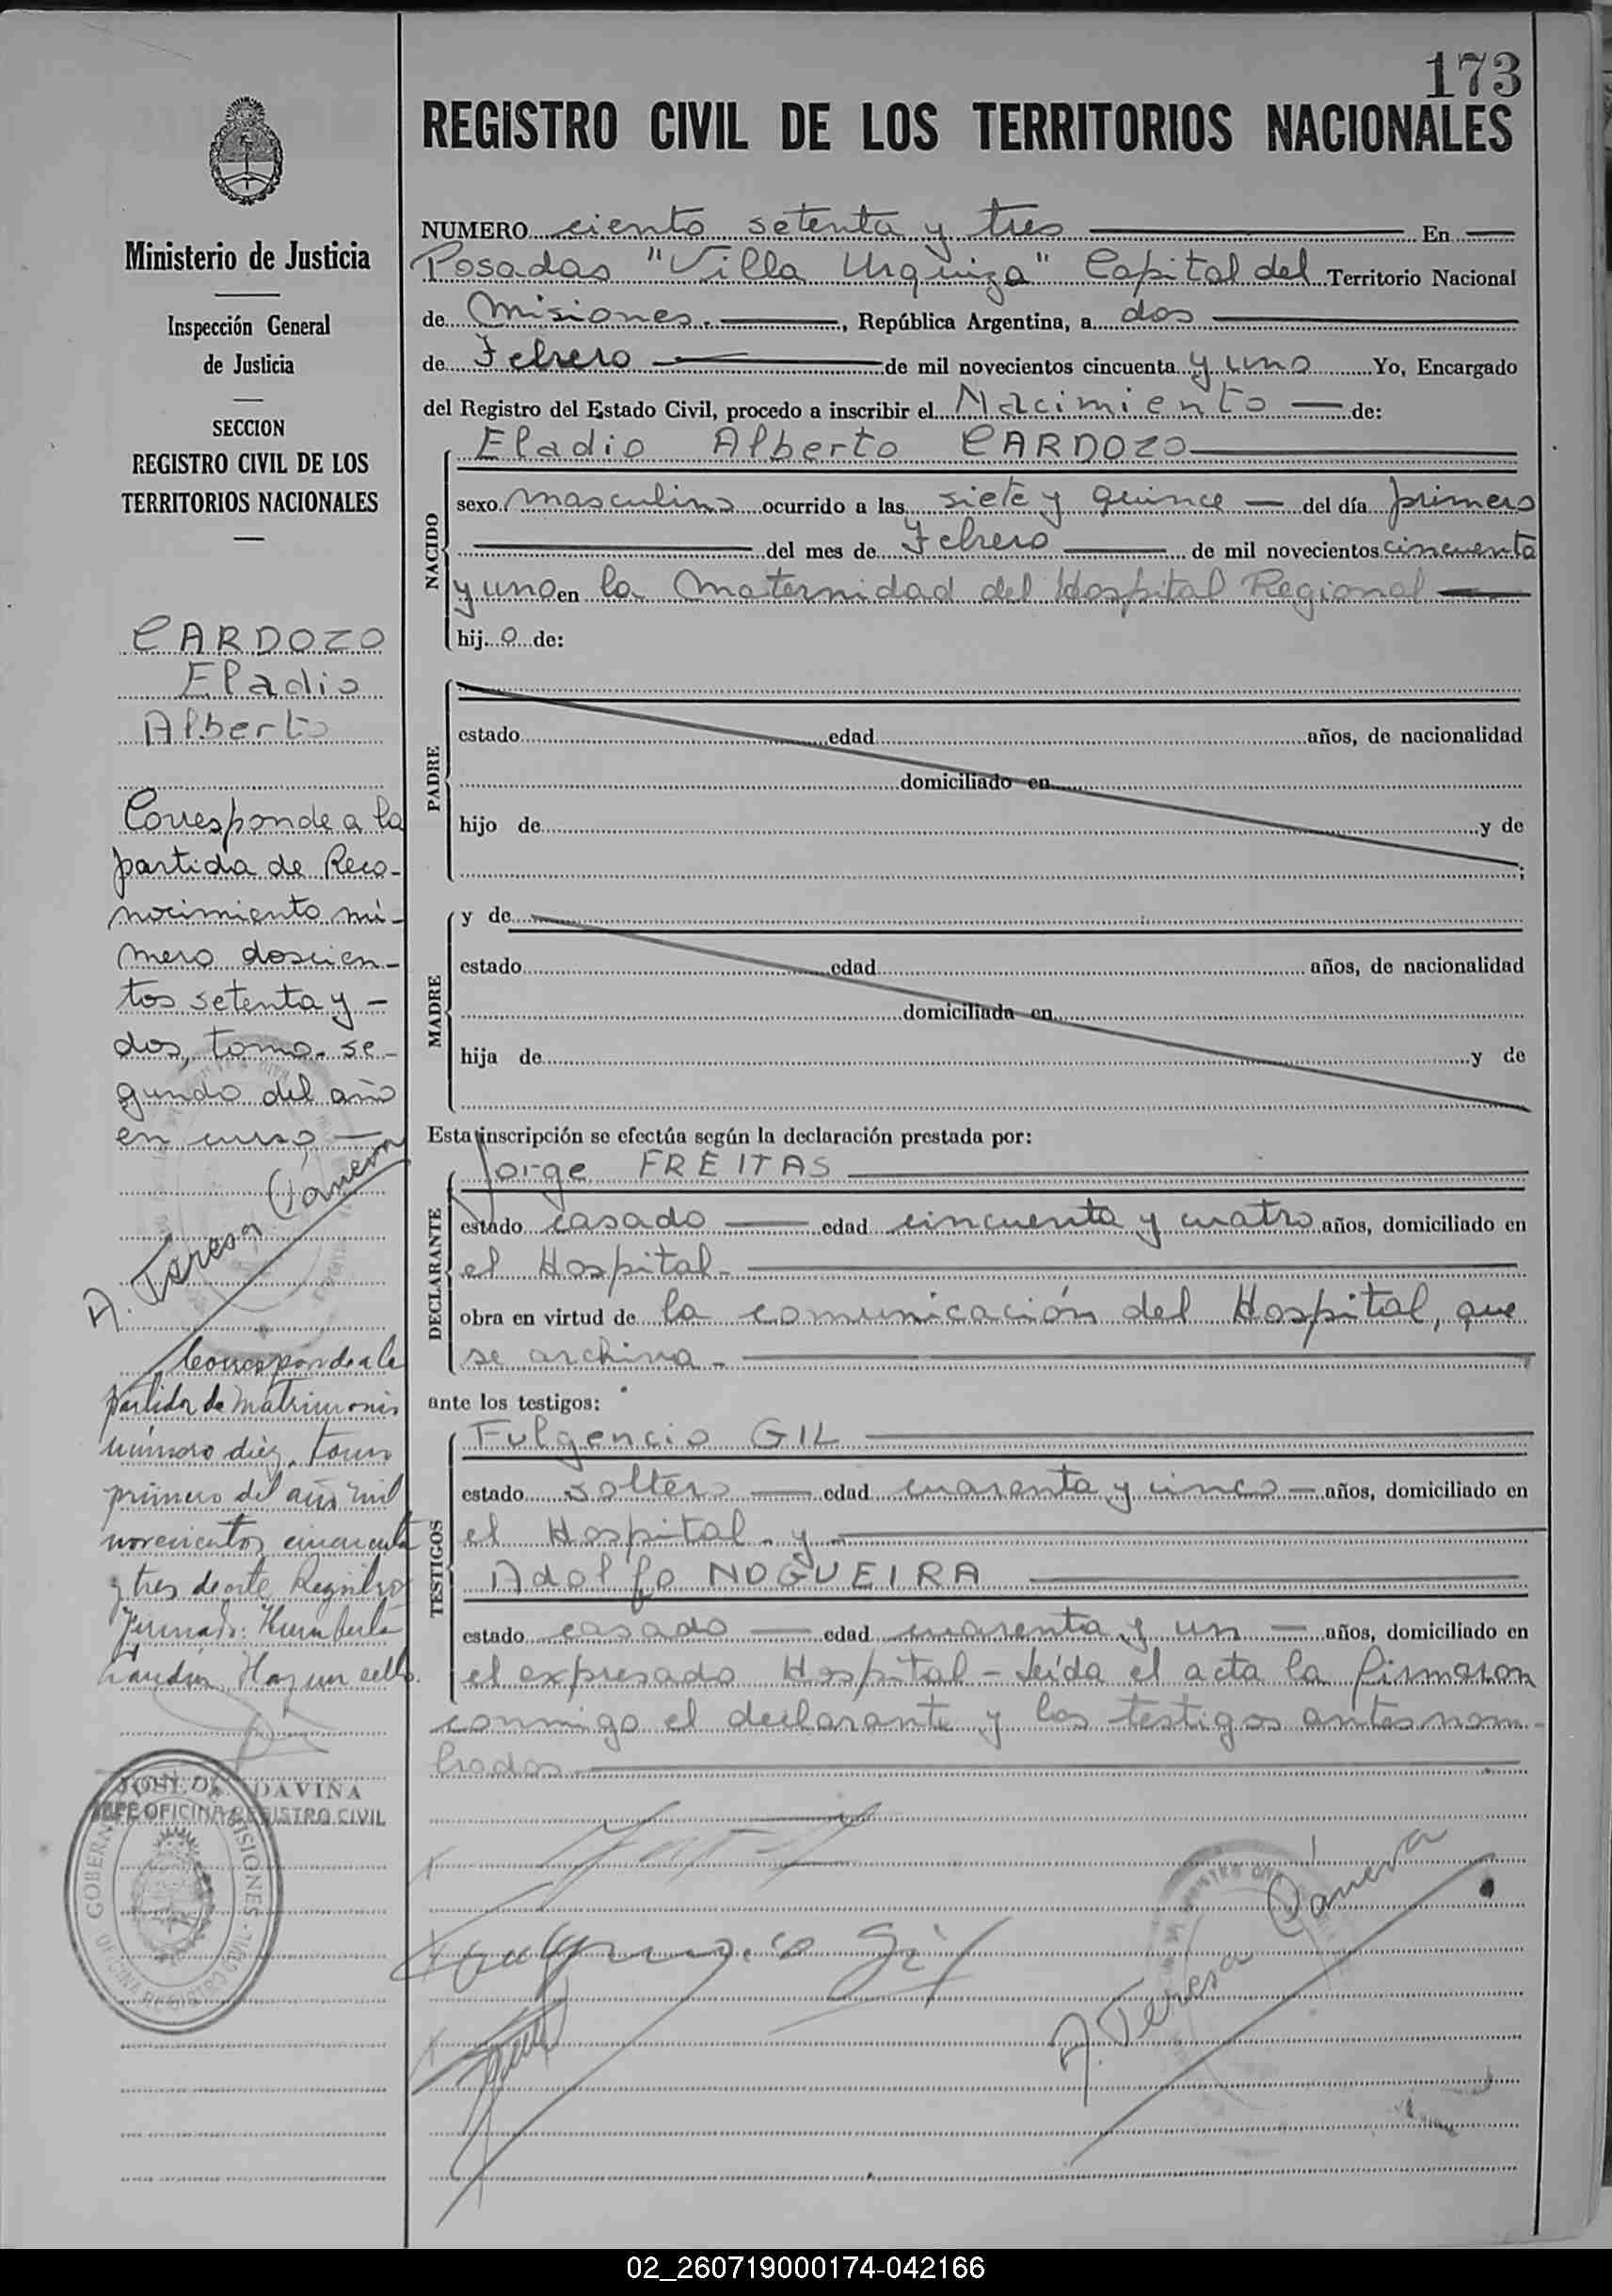 173
REGISTRO CIVIL DE LOS TERRITORIOS NACIONALES
Ministerio de Justicia
Inspección General
de Justicia
SECCION
REGISTRO CIVIL DE LOS
TERRITORIOS NACIONALES
CARDOZO
Eladio
Alberto
Corresponde a la
partida de Reco-
nocimiento nú-
mero doscien-
tos setenta y -
dos, tomo se-
gundo del año
en curso
A. Teresa Cáneva
Corresponde a la
partida de Matrimonio
número diez, tomo
primero del año mil
novecientos cincuenta
y tres de este Registro
Firmado: Humberto
Hay un sello.
JOSE D. DAVIÑA
JEFE OFICINA REGISTRO CIVIL
GOBERN MISIONES - OFICINA REGISTRO CIVIL
NUMERO ciento setenta y tres En
Posadas "Villa Urquiza" Capital del Territorio Nacional
de Misiones. , República Argentina, a dos
de Febrero de mil novecientos cincuenta y uno Yo, Encargado
del Registro del Estado Civil, procedo a inscribir el Nacimiento de:
NACIDO
Eladio Alberto CARDOZO
sexo masculino ocurrido a las siete y quince del día primero
del mes de Febrero de mil novecientos cincuenta
y uno en la Maternidad del Hospital Regional
hijo de:
PADRE
estado edad años, de nacionalidad
domiciliado en
hijo de y de
;
MADRE
y de
estado edad años, de nacionalidad
domiciliada en
hija de y de
Esta inscripción se efectúa según la declaración prestada por:
DECLARANTE
Jorge FREITAS
estado casado edad cincuenta y cuatro años, domiciliado en
el Hospital.
obra en virtud de la comunicación del Hospital, que
se archiva.
ante los testigos:
TESTIGOS
Fulgencio GIL
estado soltero edad cuarenta y cinco años, domiciliado en
el Hospital. y
Adolfo NOGUEIRA
estado casado edad cuarenta y un años, domiciliado en
el expresado Hospital - Leída el acta la firmaron
conmigo el declarante y los testigos antes nom-
brados
Fulgencio Gil
A. Teresa Cáneva
02_260719000174-042166